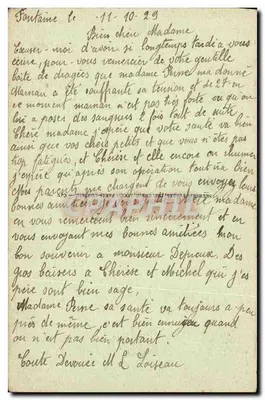 Fontaine le 11-10-29
Bien chère Madame
Excusez-moi d'avoir si longtemps tardé a vous
écrire, pour vous remercier de votre gentille
boite de dragées que madame Perne ma donné
Maman a été souffrante sa tension et de 27 en
ce moment maman n'est pas très forte vu qu'on
lui a poser des sangsues 2 fois tout de suite
Chère madame j'espère que votre santé va bien
ainsi que vos chers petits et que vous n'êtes pas
trop fatiguée, et Thérèse et elle encore au
j'espère qu'après son opération tout ira bien
Mes parents me chargent de vous envoyer leurs
bonnes amitiés madame
en vous remerciant bien sincèrement et en
vous envoyant mes bonnes amitiées mon
bon souvenir a monsieur Dejoux. Des
gros baisers a Thérèse et Michel qui j'es
père sont bien sage.
Madame Perne sa santé va toujours a peu
près de même, c'est bien ennuyeu quand
on n'est pas bien portant.
Toute Dévouée M L Loiseau